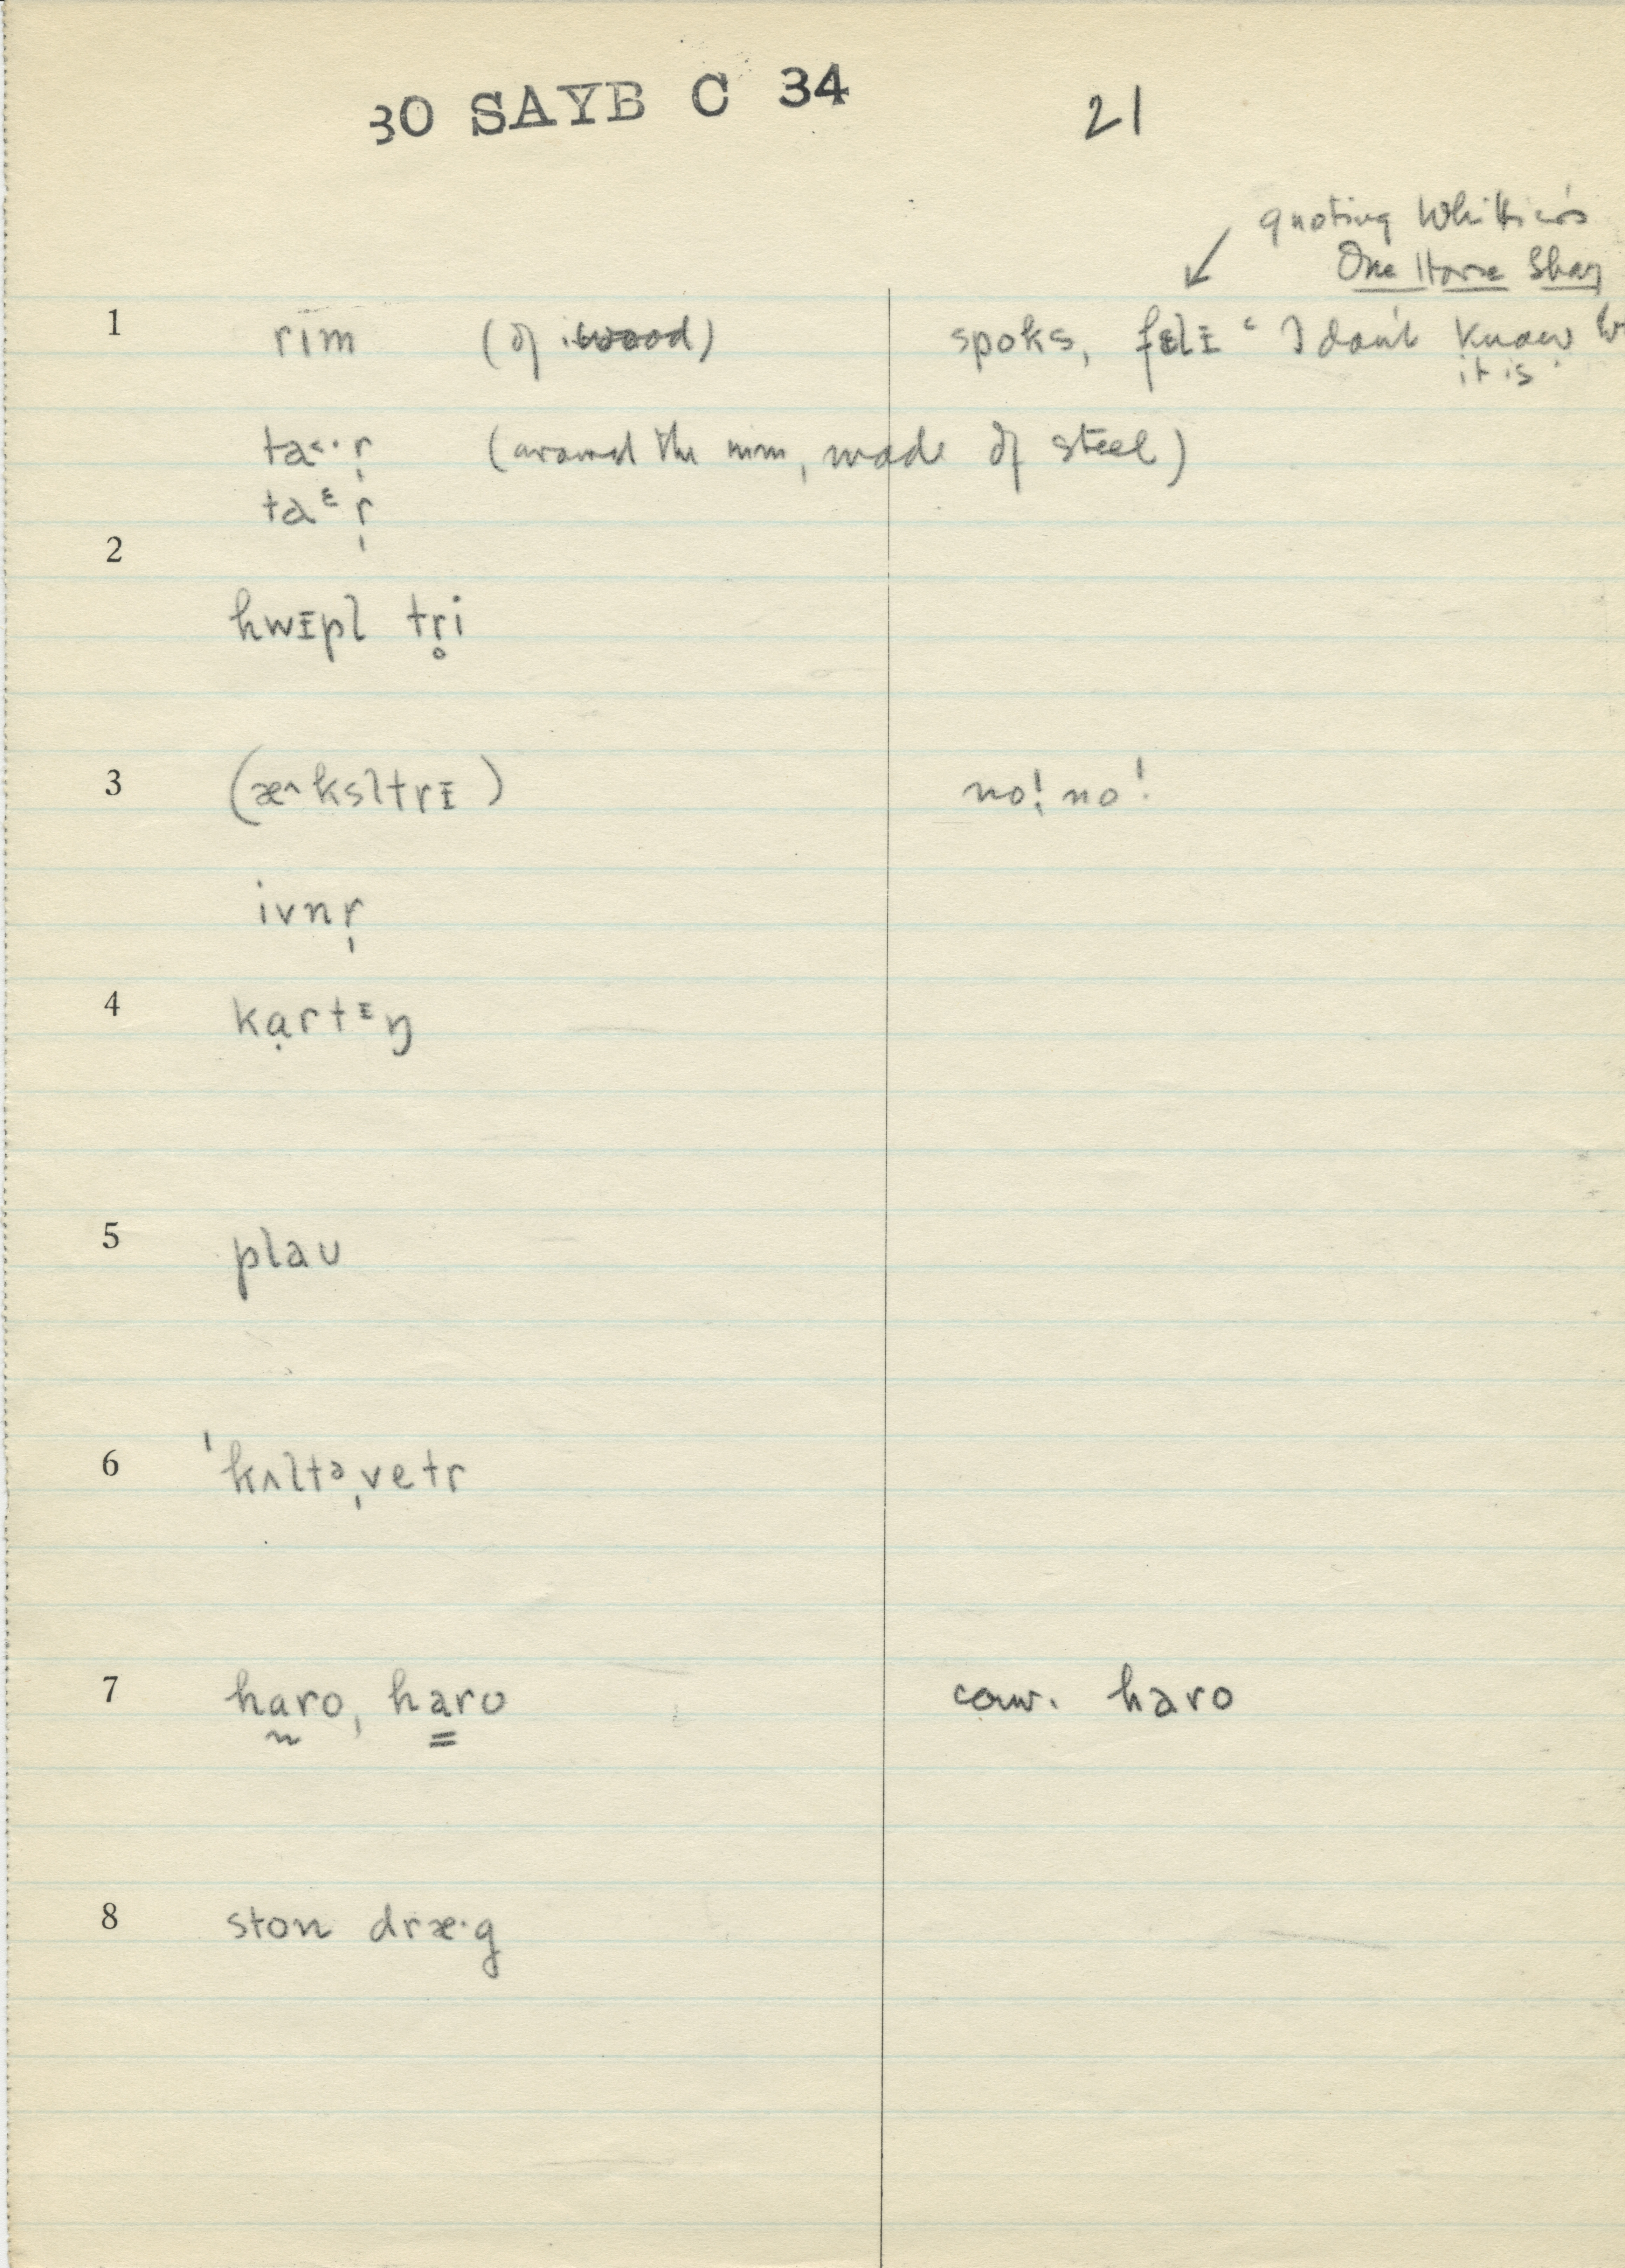 30 SAYB C 34 21
quoting Whittier's
One Horse Shay
1 rim (of wood) spoks, fɛlɪ "I don't know
it is"
ta˂·r̩ (around the rim, made of steel)
taᵋr̩
2
hwɪpl tr̥i
3 (æ^ksltrɪ) no! no!
ivnr̩
4 kạrtᶦŋ
5 plaʊ
6 ˈkʌltᵊˌvetr
7 haro, haro conv. haro
8 ston dræ·g